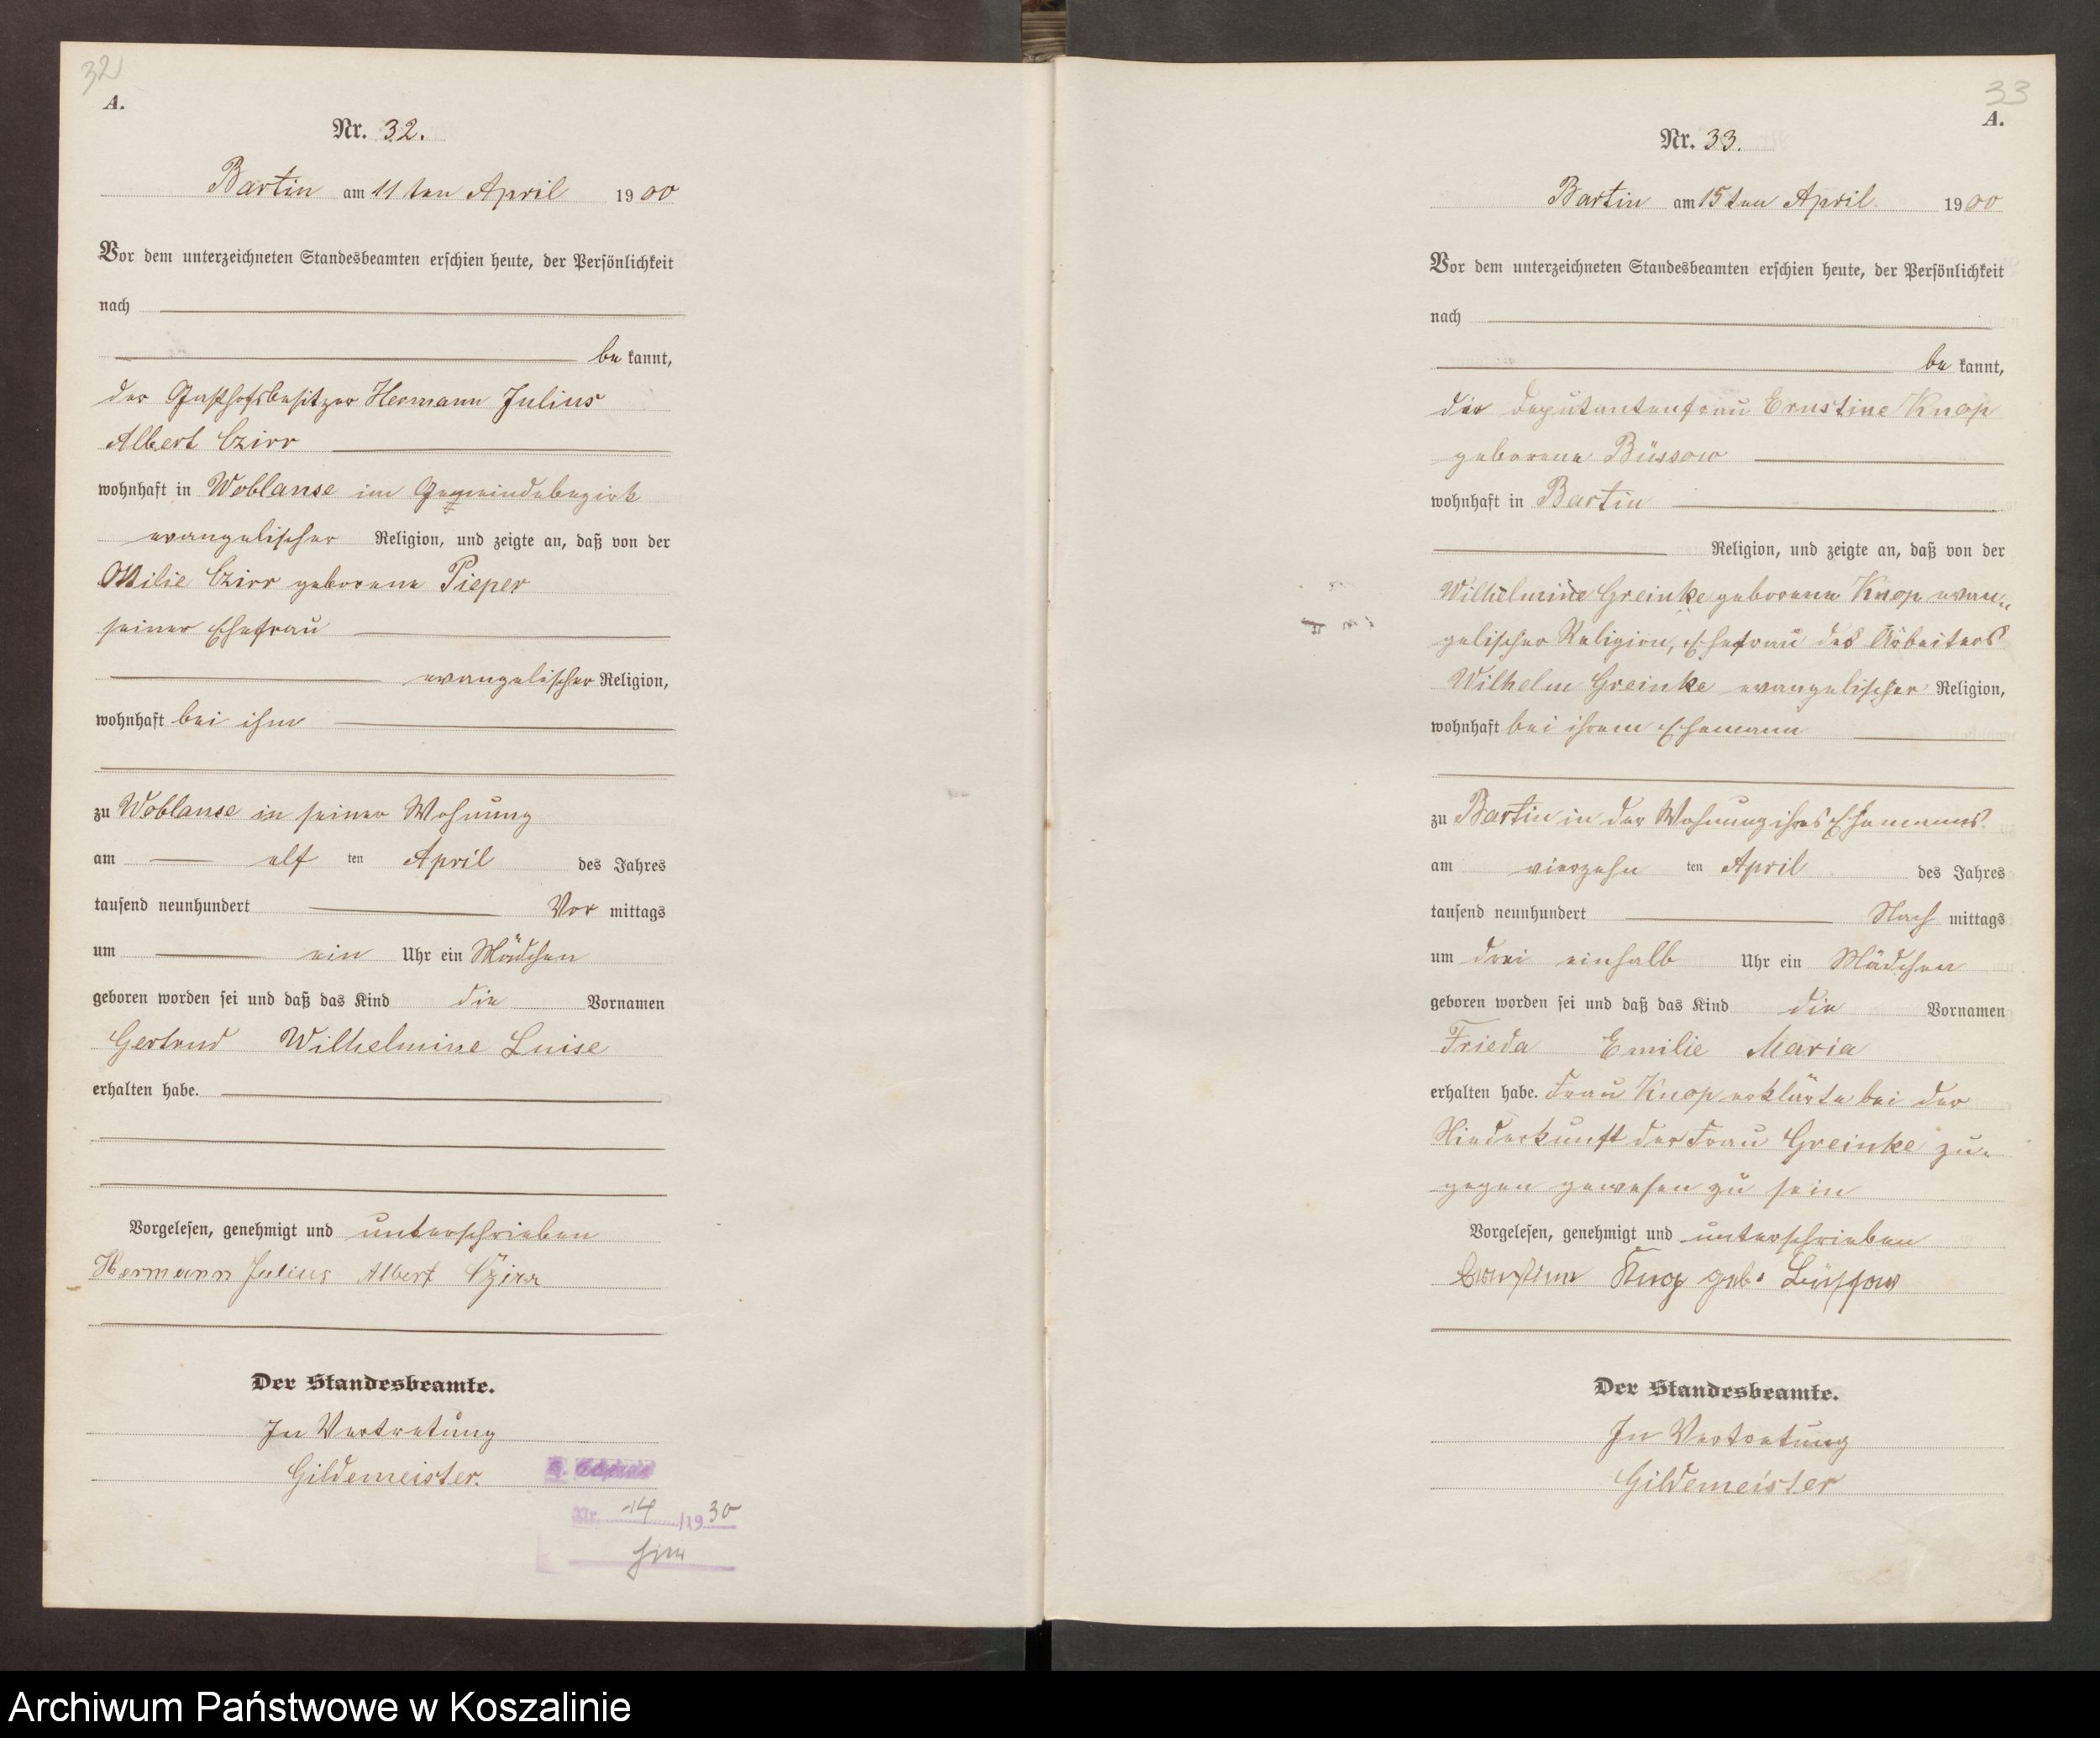 32
A.
Nr. 32.
Bartin am 11 ten April 1900
Vor dem unterzeichneten Standesbeamten erschien heute, der Persönlichkeit
nach
be kannt,
der Gasthofsbesitzer Hermann Julius
Albert Czirr
wohnhaft in Woblanse im Gemeindebezirk
evangelischer Religion, und zeigte an, daß von der
Ottilie Czirr geborene Pieper
seiner Ehefrau
evangelischer Religion,
wohnhaft bei ihm
zu Woblanse in seiner Wohnung
am elf ten April des Jahres
tausend neunhundert Vor mittags
um ein Uhr ein Mädchen
geboren worden sei und daß das Kind die Vornamen
Gertrud Wilhelmine Luise
erhalten habe.
Vorgelesen, genehmigt und unterschrieben
Hermann Julius Albert Czirr
Der Standesbeamte.
In Vertretung
Gildemeister.
Nr. 14 /1930
33
A.
Nr. 33.
Bartin am 15 ten April 1900
Vor dem unterzeichneten Standesbeamten erschien heute, der Persönlichkeit
nach
be kannt,
die Deputantenfrau Ernstine Knop
geborene Büssow
wohnhaft in Bartin
Religion, und zeigte an, daß von der
Wilhelmine Greinke geborene Knop evan„
gelischer Religion, Ehefrau des Arbeiters
Wilhelm Greinke evangelischer Religion,
wohnhaft bei ihrem Ehemann
zu Bartin in der Wohnung ihres Ehemannes
am vierzehn ten April des Jahres
tausend neunhundert Nach mittags
um drei einhalb Uhr ein Mädchen
geboren worden sei und daß das Kind die Vornamen
Frieda Emilie Maria
erhalten habe. Frau Knop erklärte bei der
Niederkunft der Frau Greinke zu„
gegen gewesen zu sein
Vorgelesen, genehmigt und unterschrieben
Ernstine Knop geb. Büssow
Der Standesbeamte.
In Vertretung
Gildemeister
Archiwum Państwowe w Koszalinie